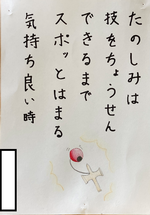 たのしみは
技をちょうせん
できるまで
スポッとはまる
気持ち良い時